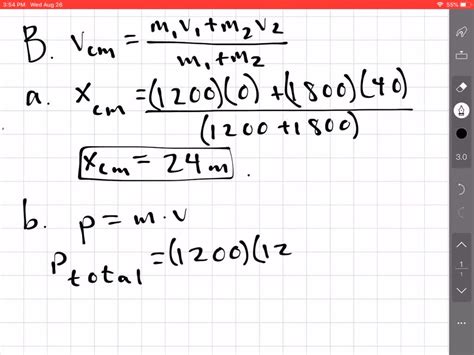 3:54 PM Wed Aug 26
58%
B. Vcm = m₁v₁+m₂v2 / m₁+m2
a. Xcm = (1200)(0)+(1800)(40) / (1200+1800)
Xcm = 24m.
b. p = m·v
Ptotal = (1200)(12
3.0
1
1